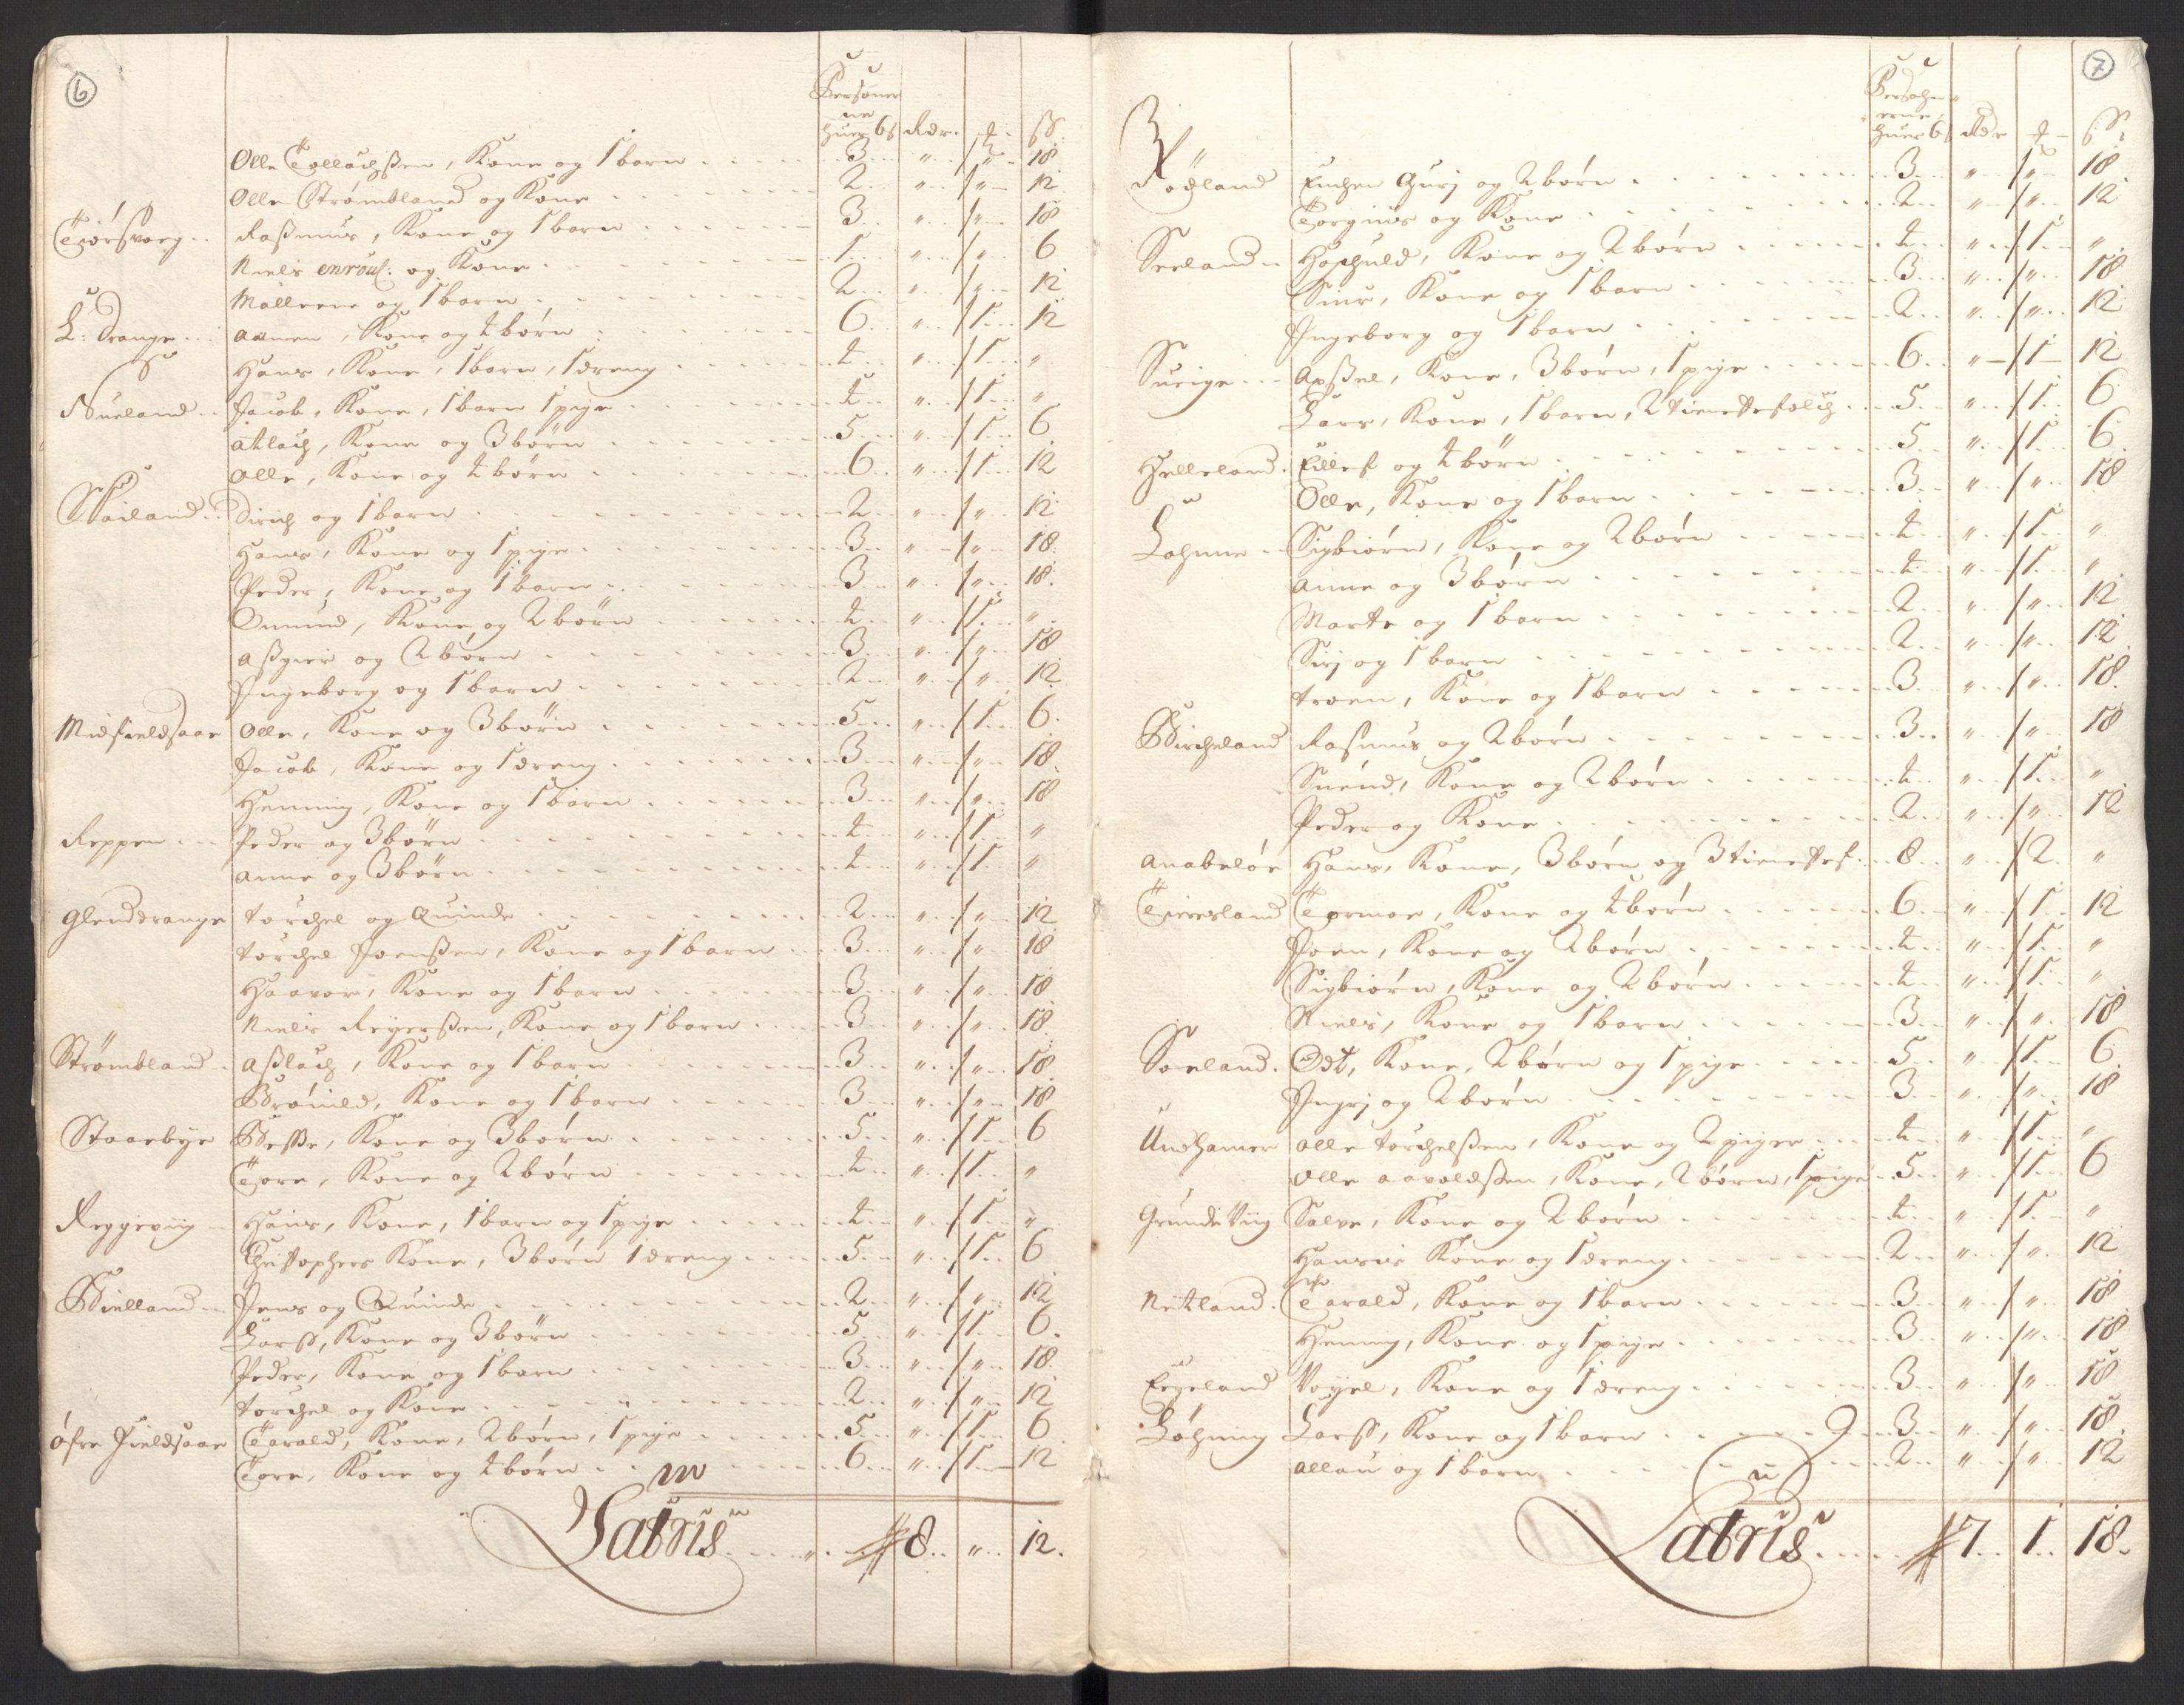 6
Personerne huer 6 ß Rdr. ß
Olle Tollachßen, Kone og 1 barn 3 " " 18
Olle Strømbland og Kone 2 " " 12
Rasmus, Kone og 1 barn 3 " " 18
Niels enroul: og Kone 1 " " 6
Mallene og 1 barn 2 " " 12
L: Drange Aanen, Kone og 4 børn 6 " 1 12
Hans, Kone, 1 barn, 1 dreng 4 " 1 "
Nueland Jacob, Kone, 1 barn 1 pige 4 " 1 "
Atlach, Kone og 3 børn 5 " 1 6
Olle, Kone og 4 børn 6 " 1 12
Dirich og 1 barn 2 " " 12
Hans, Kone og 1 pige 3 " " 18
Peder, Kone og 1 barn 3 " " 18
Omund, Kone og 2 børn 4 " 1 "
Aßgier og 2 børn 3 " " 18
Ingeborg og 1 barn 2 " " 12
Midfieldsaae Olle, Kone og 3 børn 5 " 1 6
Jacob, Kone og 1 dreng 3 " " 18
Henning, Kone og 1 barn 3 " " 18
Reppen Peder og 3 børn 4 " 1 "
Anne og 3 børn 4 " 1 "
Glendrange Torchel og Quinde 2 " " 12
Torchel Joenßen, Kone og 1 barn 3 " " 18
Haavor, Kone og 1 barn 3 " " 18
Niels Reyerßen, Kone og 1 barn 3 " " 18
Strømbland Aßlach, Kone og 1 barn 3 " " 18
Brønild, Kone og 1 barn 3 " " 18
Staarbye Beße, Kone og 3 børn 5 " 1 6
Tore, Kone og 2 børn 4 " 1 "
Reggeviig Hans, Kone, 1 barn og 1 pige 4 " 1 "
Christophers Kone, 3 børn 1 dreng 5 " 1 6
Bielland Jens og Quinde 2 " " 12
Larß, Kone og 3 børn 5 " 1 6
Peder, Kone og 1 barn 3 " " 18
Torchel og Kone 2 " " 12
Øfre Fieldsaae Tarald, Kone, 2 børn, 1 pige 5 " 1 6
Tore, Kone og 4 børn 6 " 1 12
Latris 8 " 12.
7
Persohnerne huer 6 ß Rdr ß
Enchen Gurj og 2 børn 3 " " 18
Torgiuls og Kone 2 " " 12
Seeland Hoschuld, Kone og 2 børn 4 " 1 "
Siur, Kone og 1 barn 3 " " 18
Ingeborg og 1 barn 2 " " 12
Suige Axßel, Kone, 3 børn, 1 pige 6 " 1 12
Lars, Kone, 1 barn, 2 tienestefolch 5 " 1 6
Helleland Eillef og 4 børn 5 " 1 6
Olle, Kone og 1 barn 3 " " 18
Lohme Sigbiørn, Kone og 2 børn 4 " 1 "
Anne og 3 børn 4 " 1 "
Marte og 1 barn 2 " " 12
Sirj og 1 barn 2 " " 12
Troen, Kone og 1 barn 3 " " 18
Bircheland Rasmus og 2 børn 3 " " 18
Suend, Kone og 2 børn 4 " 1 "
Peder og Kone 2 " " 12
Anabeløe Hans, Kone, 3 børn og 3 tienestef. 8 " 2 "
Tiersland Tormoe, Kone og 4 børn 6 " 1 12
Joen, Kone og 2 børn 4 " 1 "
Sigbiørn, Kone og 2 børn 4 " 1 "
Niels, Kone og 1 barn 3 " " 18
Soeland Odt, Kone, 2 børn og 1 pige 5 " 1 6
Ingrj og 2 børn 3 " " 18
Undhamer Olle Torchelßen, Kone og 2 piger 4 " 1 "
Olle Aavoldßen, Kone, 2 børn, 1 pige 5 " 1 6
Grundeviig Salve, Kone og 2 børn 4 " 1 "
Hanses Kone og 1 dreng 2 " " 12
Netland Tarald, Kone og 1 barn 3 " " 18
Henning, Kone og 1 pige 3 " " 18
Egeland Vogel, Kone og 1 dreng 3 " " 18
Løhning Larß, Kone og 1 barn 3 " " 18
Allau og 1 barn 2 " " 12
Latris 7 1 18.